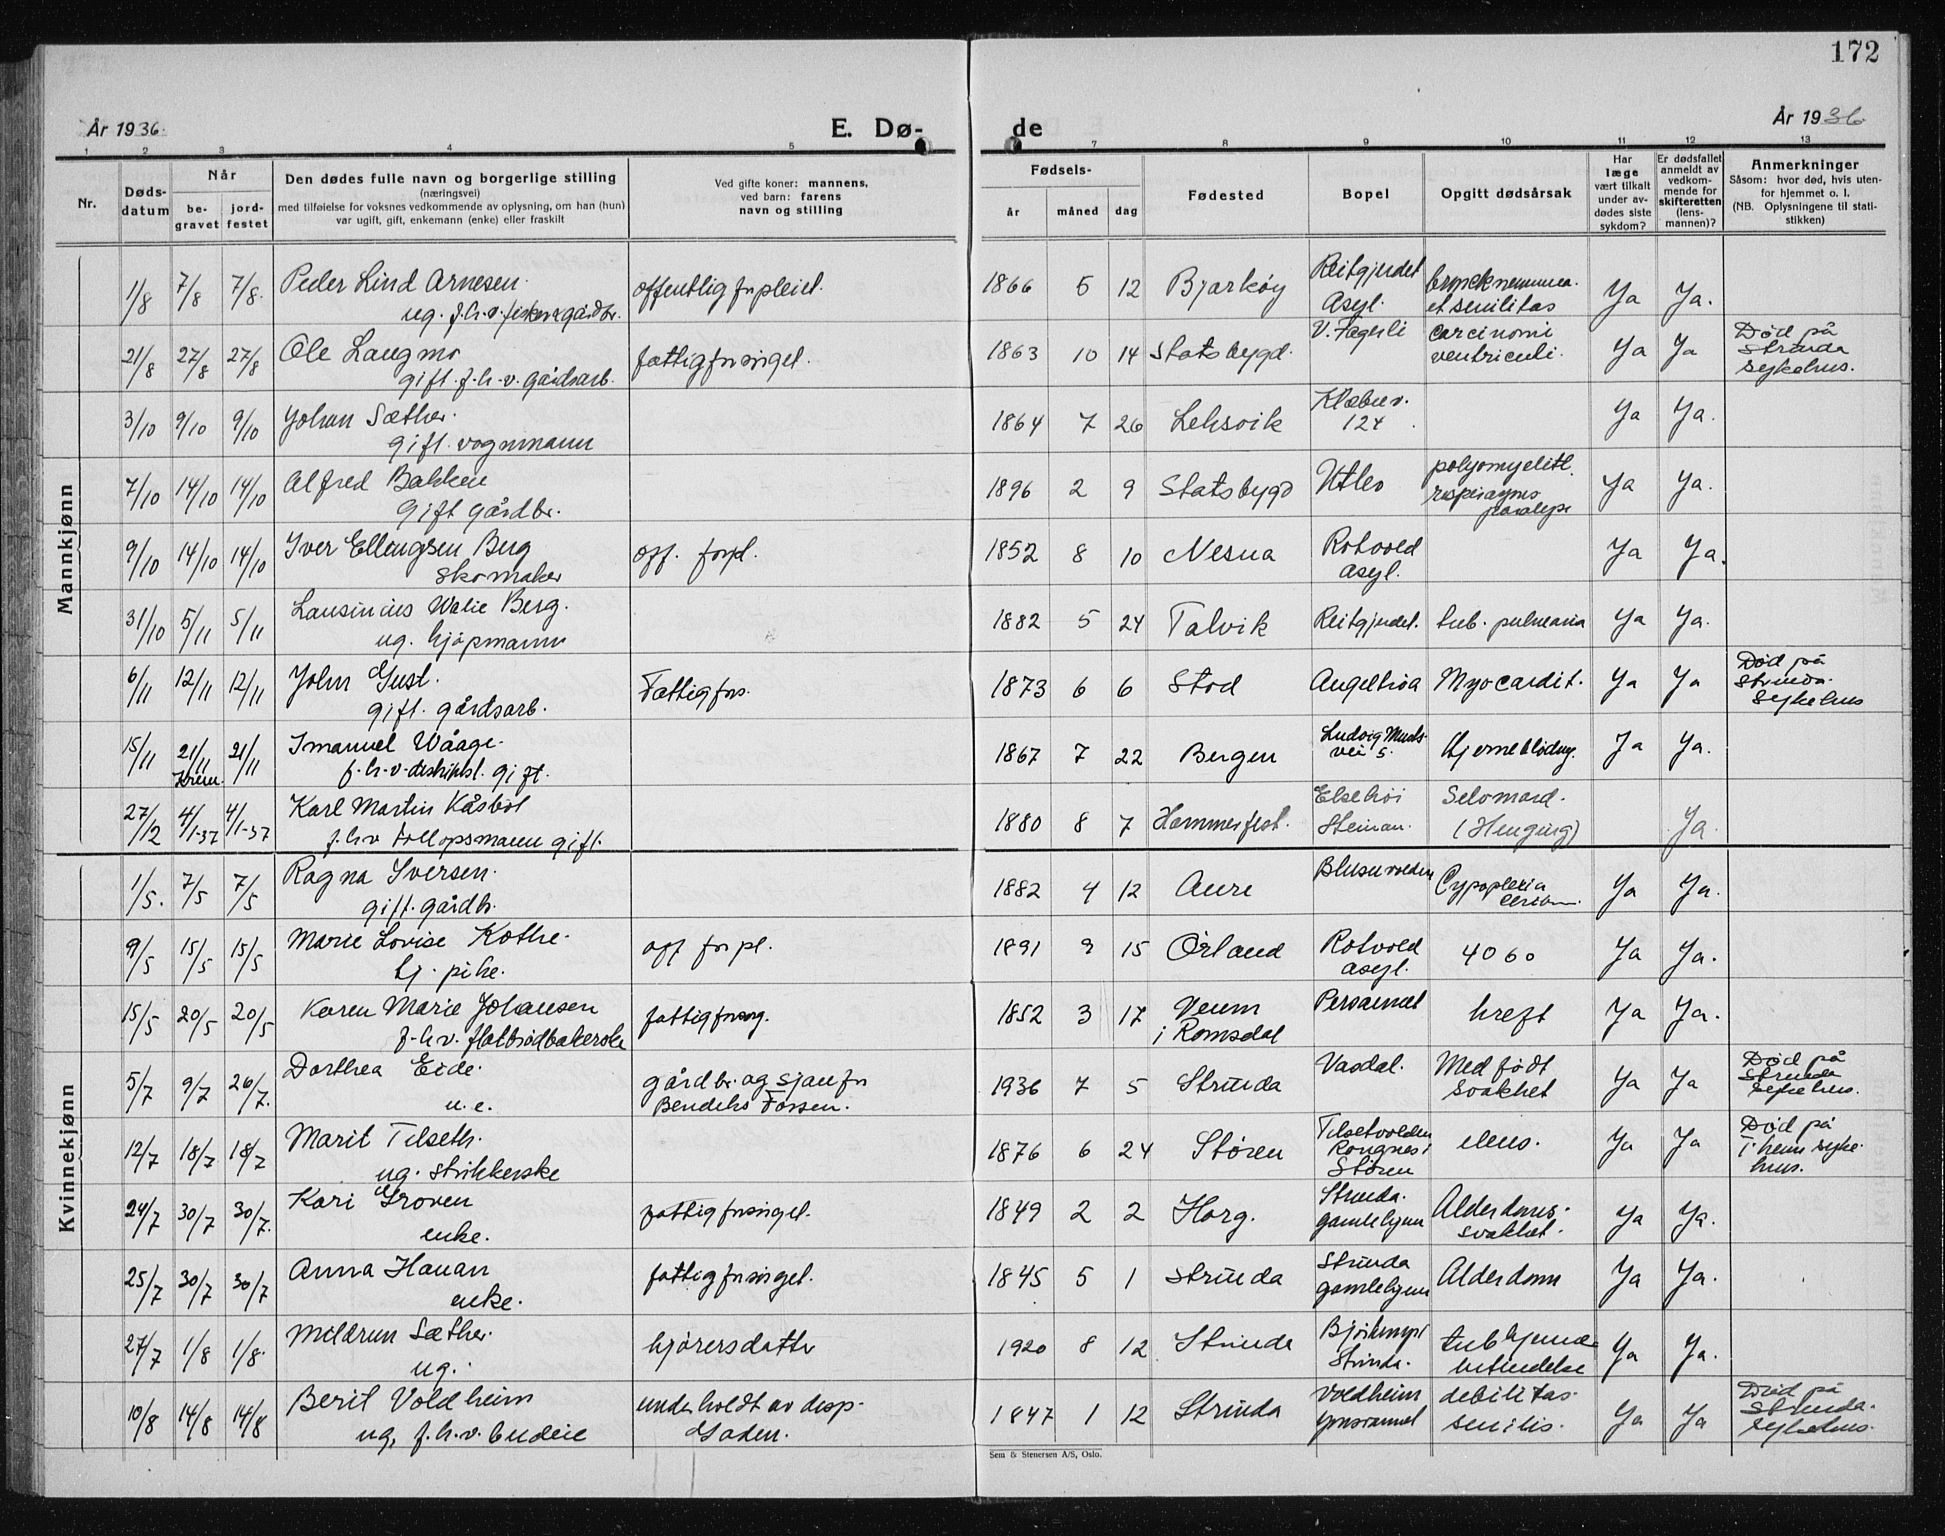 172
År 1936.
E. Dø-
de
År 1936.
1 2 3 4 5 7 8 9 10 11 12 13
Nr.
Døds-
datum
Når
be-
gravet
jord-
festet
Den dødes fulle navn og borgerlige stilling
(næringsvei)
med tilføielse for voksnes vedkommende av oplysning, om han (hun)
var ugift, gift, enkemann (enke) eller fraskilt
Ved gifte koner: mannens,
ved barn: farens
navn og stilling
Fødsels-
år måned dag
Fødested
Bopel
Opgitt dødsårsak
Har
læge
vært tilkalt
under av-
dødes siste
sykdom?
Er dødsfallet
anmeldt av
vedkom-
mende for
skifteretten
(lens-
mannen)?
Anmerkninger
Såsom: hvor død, hvis uten-
for hjemmet o. l.
(NB. Oplysningene til stati-
stikken)
Mannkjønn
1/8 7/8 7/8. Peder Lind Arnesen. offentlig forpleiet. 1866 5 12 Bjarkøy Reitgjerdet Ja Ja.
ug. f.h.v. fisker & gårdbr. Asyl. et senilitas
21/8 27/8 27/8 Ole Langmo fattigforsørget. 1863 10 14 Statsbygd. V. Fagerli carcinomi Ja Ja Død på
gift. f.h.v. gårdsarb. ventriculi. Strinda
sykehus.
3/10 9/10 9/10 Johan Sæther. 1864 7 26 Leksvik Klæbuv. Ja Ja.
gift. vognmann 124.
7/10 14/10 14/10 Alfred Bakken 1896 2 9 Statsbygd Utleo polyomyelitt. Ja Ja.
gift gårdbr.
9/10 14/10 14/10 Iver Ellingsen Berg off. forpl. 1852 8 10 Nesna Rotvold Ja Ja.
skomaker asyl.
31/10 5/11 5/11 Berg. 1882 5 24 Talvik Reitgjerdet. tub. pulmonia Ja Ja.
ug. kjøpmann
6/11 12/11 12/11 John Gust. Fattigfors. 1873 6 6 Stod Angeltrøa Myocardit. Ja Ja Død på
gift. gårdsarb. Strinda.
sykehus
15/11 21/11 21/11 Imanuel Wåage. 1867 7 22 Bergen Ludvig Musts hjerneblødng. Ja Ja.
Krem. f.h.v. gift. vei 5.
27/12 4/1-37 4/1-37 Karl Martin Kåsbøl 1880 8 7 Hammerfest. Elsehøi Selvmord. Ja.
f.h.v tollopsmann gift. Steinan. (Henging)
Kvinnekjønn
1/5. 7/5 7/5 Ragna Iversen. 1882 4 12 Aure Blusuvolden Ja Ja.
gift. gårdb.
9/5 15/5 15/5 Marie Lovise Kothe. off forpl. 1891 9 15 Ørland Rotvold 4060 Ja Ja.
hj. pike. asyl.
15/5 20/5 20/5 Karen Marie Johansen fattigforsørg. 1852 3 17 Veum Persaunet kreft Ja Ja.
f.h.v. flatbrødbakerske i Romsdal
5/7 9/7 26/7. Dorthea Eide. gårdbr. og sjaufør 1936 7 5 Strinda Vasdal. Medfødt Ja Ja Død på
u.e. Bendiks Fossen. svakhet Strinda
sykehus.
12/7 18/7 18/7 Marit Tilseth. 1876 6 24 Støren Tilsetvolden ileus. Ja Ja Død på
ug. strikkerske Rongnes i T.heim syke
Støren hus.
24/7 30/7 30/7. Kari Groven fattigforsørget. 1849 2 2 Horg. Strinda. Alderdoms- Ja Ja.
enke. gamlehjem svakhet.
25/7 30/7 30/7 Anna Hauan fattigforsørget. 1845 5 1 Strinda Strinda Alderdom Ja Ja.
enke. gamlehjem
27/7 1/8 1/8. Mildrun Sæther. kjørersdatter 1920 8 12 Strinda tub hjerne Ja Ja.
ug. Strinda. betendelse
10/8 14/8 14/8 Beril Voldheim underholdt av disp- 1847 1 12 Strinda Voldheim debilitas. Ja Ja Død på
ug, f.h.v. budeie Gaden. senilis. Strinda.
sykehus.
Sem & Stenersen A/S, Oslo.